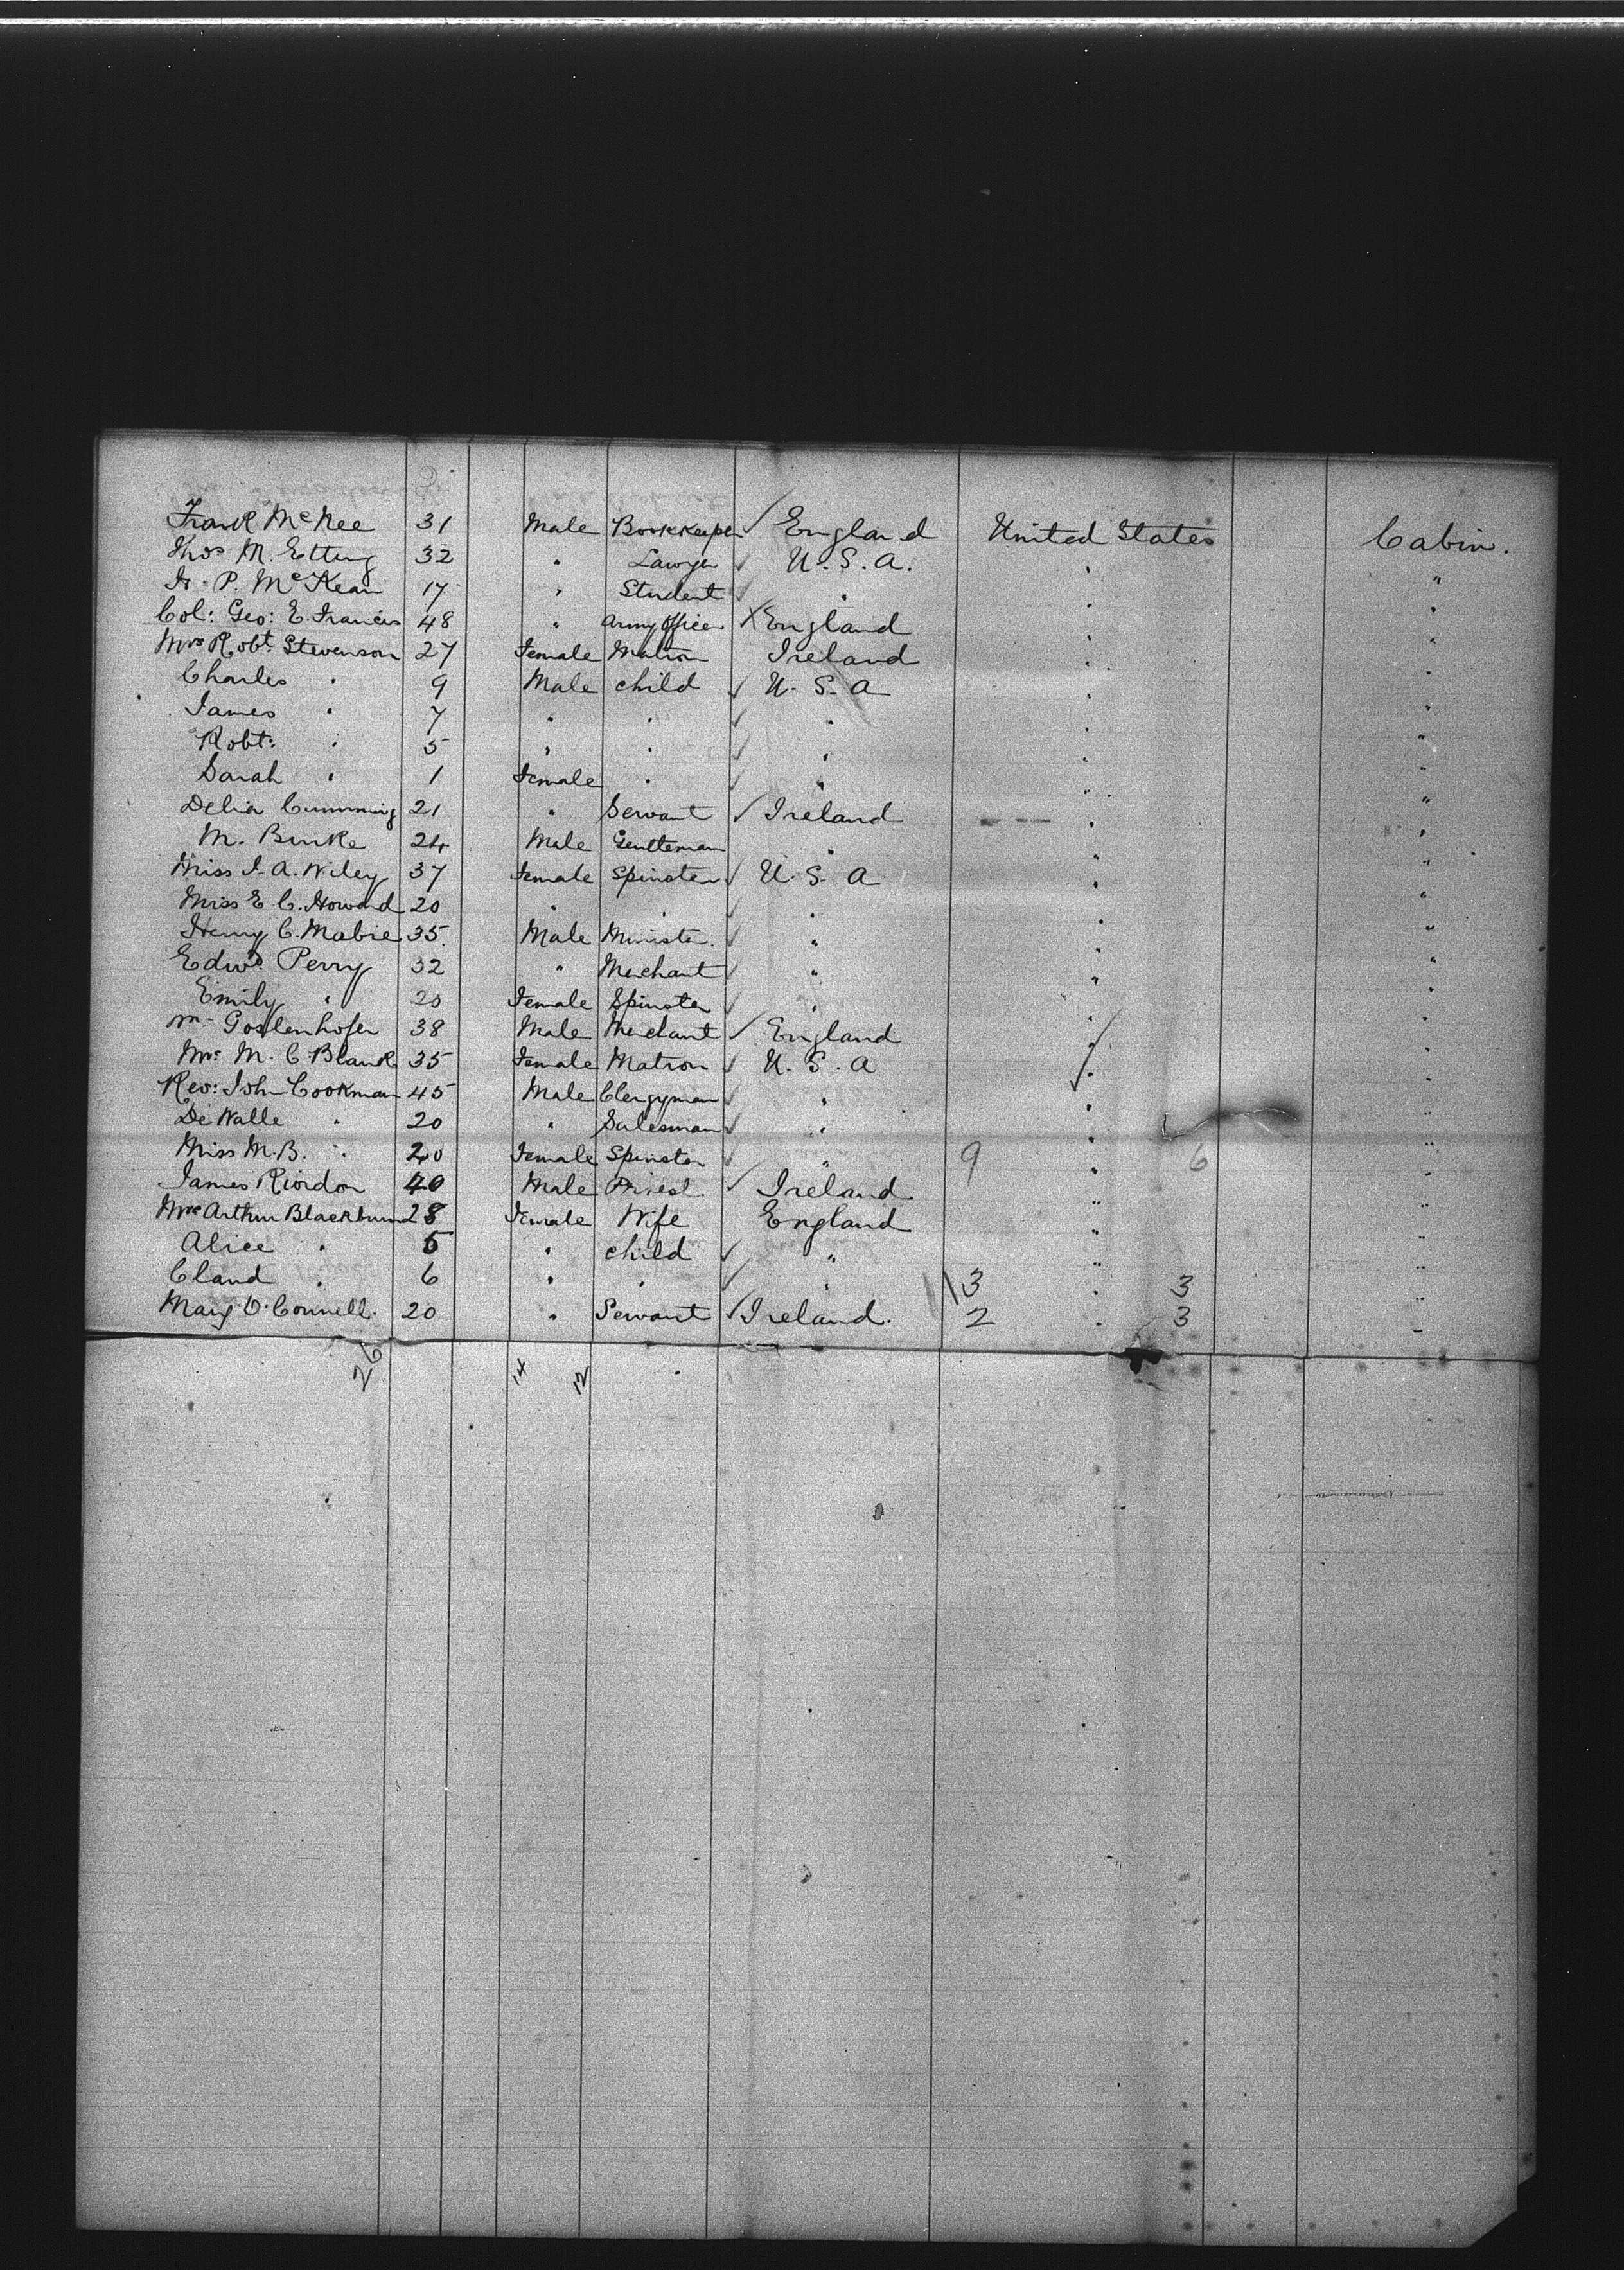 Frank McNee 31 Male Bookkeeper ✓ England United States Cabin.
Thos M. Etting 32 " Lawyer ✓ U.S.A. " "
H. P. McKean 17 " Student ✓ " " "
Col: Geo: E. Francis 48 " Army Officer X England " "
Mrs Robt. Stevenson 27 Female Matron Ireland " "
Charles " 9 Male child ✓ U.S.A " "
James " 7 " " ✓ " " "
Robt: " 5 " " ✓ " " "
Sarah " 1 Female " ✓ " " "
Delia Cumming 21 " Servant ✓ Ireland " "
M. Burke 24 Male Gentleman " " "
Miss I. A. Wiley 37 Female Spinster ✓ U.S.A " "
Miss E C. Howard 20 " " ✓ " " "
Henry C. Mabie 35 Male Minister. ✓ " " "
Edwd. Perry 32 " Merchant ✓ " " "
Emily " 20 Female Spinster ✓ " " "
Mr Goslenhofer 38 Male Merchant ✓ England " "
Mrs M. C. Blank 35 Female Matron ✓ U.S.A " "
Rev: John Cookman 45 Male Clergyman ✓ " " "
De Walle " 20 " Salesman ✓ " " "
Miss M.B. " 20 Female Spinster ✓ " 9 " 6 "
James Riordon 40 Male Priest ✓ Ireland " "
Mrs Arthur Blackburn 28 Female Wife England " "
Alice " 5 " child ✓ " " "
Claud " 6 " " ✓ " 13 " 3 "
Mary O'Connell. 20 " Servant ✓ Ireland. 2 " 3 "
26 14 12